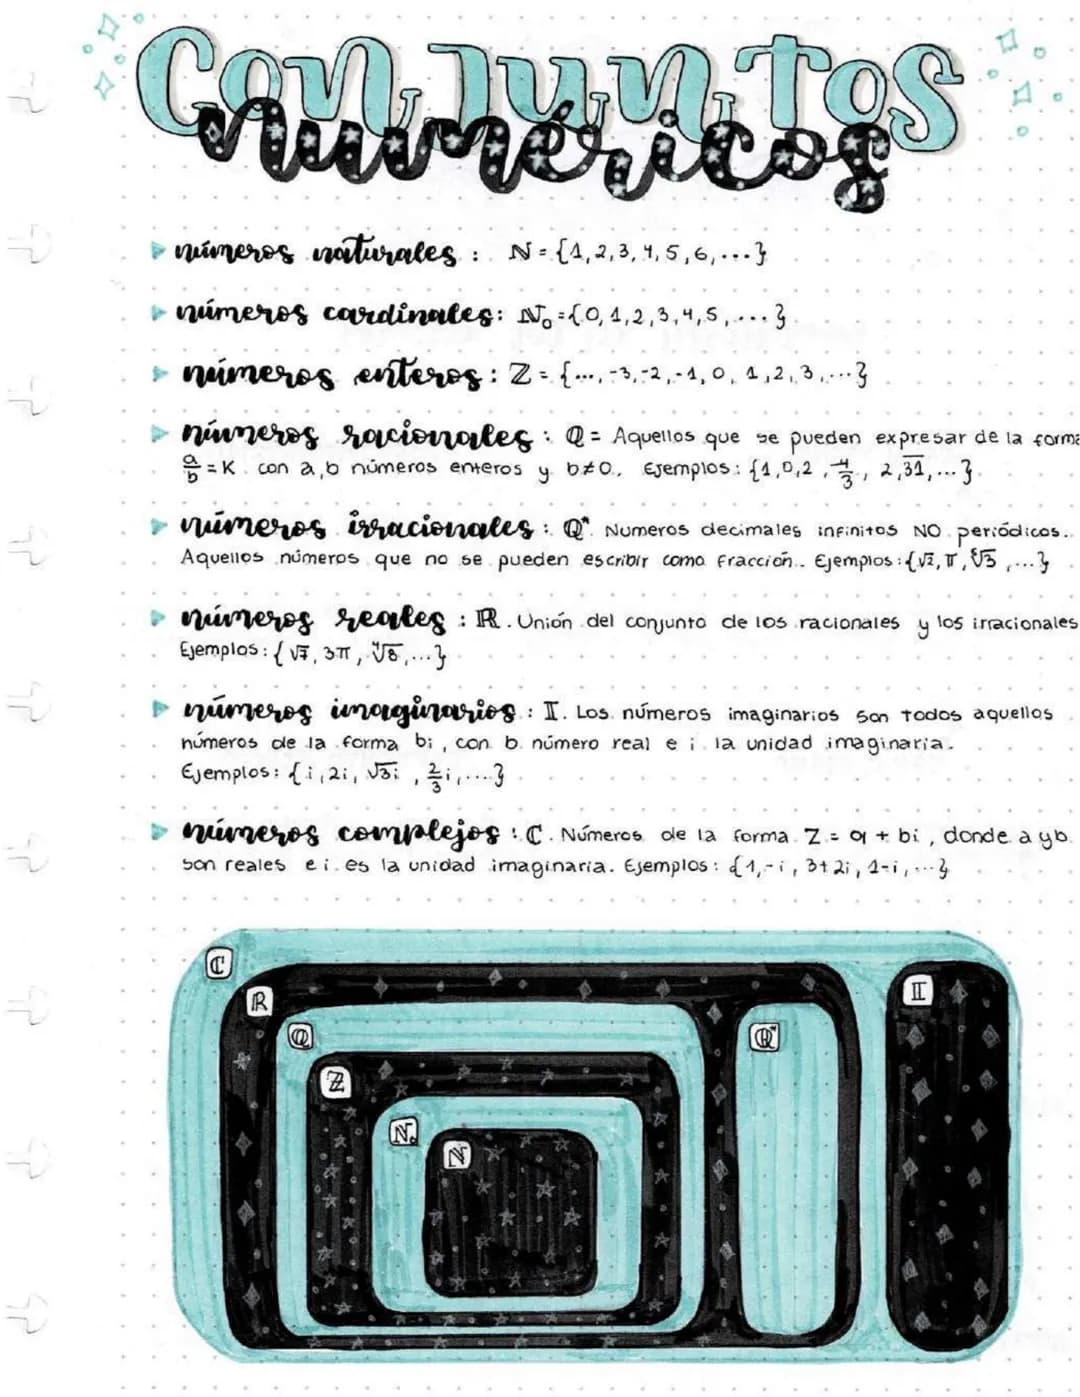 Conjuntos
numéricos
números naturales : ℕ = {1, 2, 3, 4, 5, 6, ...}
números cardinales: ℕ₀ = {0, 1, 2, 3, 4, 5, ...}
números enteros : ℤ = {..., -3, -2, -1, 0, 1, 2, 3, ...}
números racionales : ℚ = Aquellos que se pueden expresar de la forma
a/b = K con a, b números enteros y b≠0. Ejemplos: {1, 0, 2, 4/3, 2,3̅1̅, ...}
números irracionales : ℚ*. Numeros decimales infinitos NO periódicos.
Aquellos números que no se pueden escribir como fracción. Ejemplos: {√2, π, ⁶√3, ...}
números reales : ℝ. Unión del conjunto de los racionales y los irracionales
Ejemplos: {√7, 3π, ⁴√8, ...}
números imaginarios : 𝕀. Los números imaginarios son todos aquellos
números de la forma bi, con b número real e i la unidad imaginaria.
Ejemplos: {i, 2i, √3i, 2/3i, ...}
números complejos : ℂ. Números de la forma Z = a + bi, donde a y b
son reales e i es la unidad imaginaria. Ejemplos: {1, -i, 3+2i, 1-i, ...}
ℂ
ℝ
ℚ
ℤ
ℕ₀
ℕ
ℚ*
𝕀